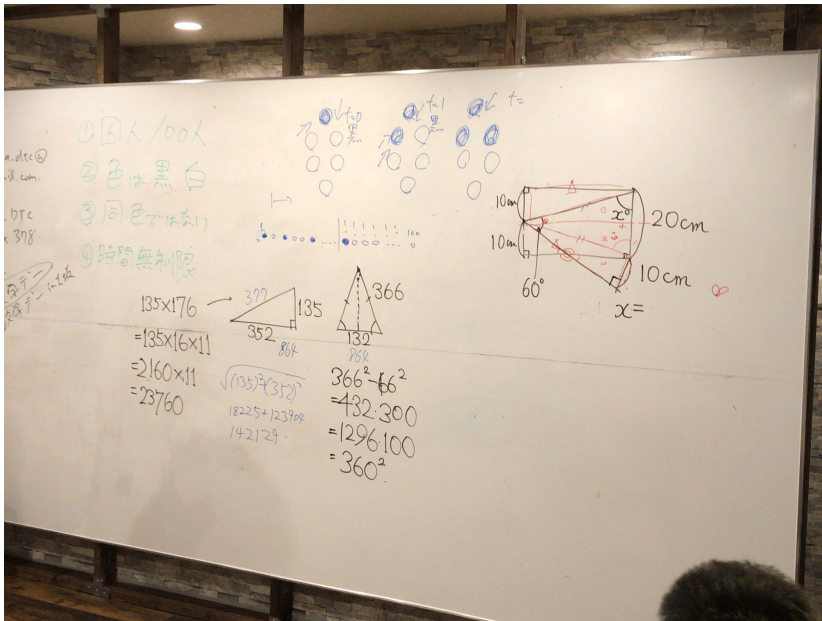 a.dtc@
il.com.
.btc
x 378
① 白人/00人
② 色は黒白
③ 同色ではない
④ 時間無制限
t=0
黒
t=1
黒
t=
100
10cm
10cm
x°
20cm
10cm
60°
x=
135×176
=135×16×11
=2160×11
=23760
377
135
352
864
√(135)²+(352)²
18225+123904
142129.
366
132
864
366²-66²
=432·300
=1296·100
=360²